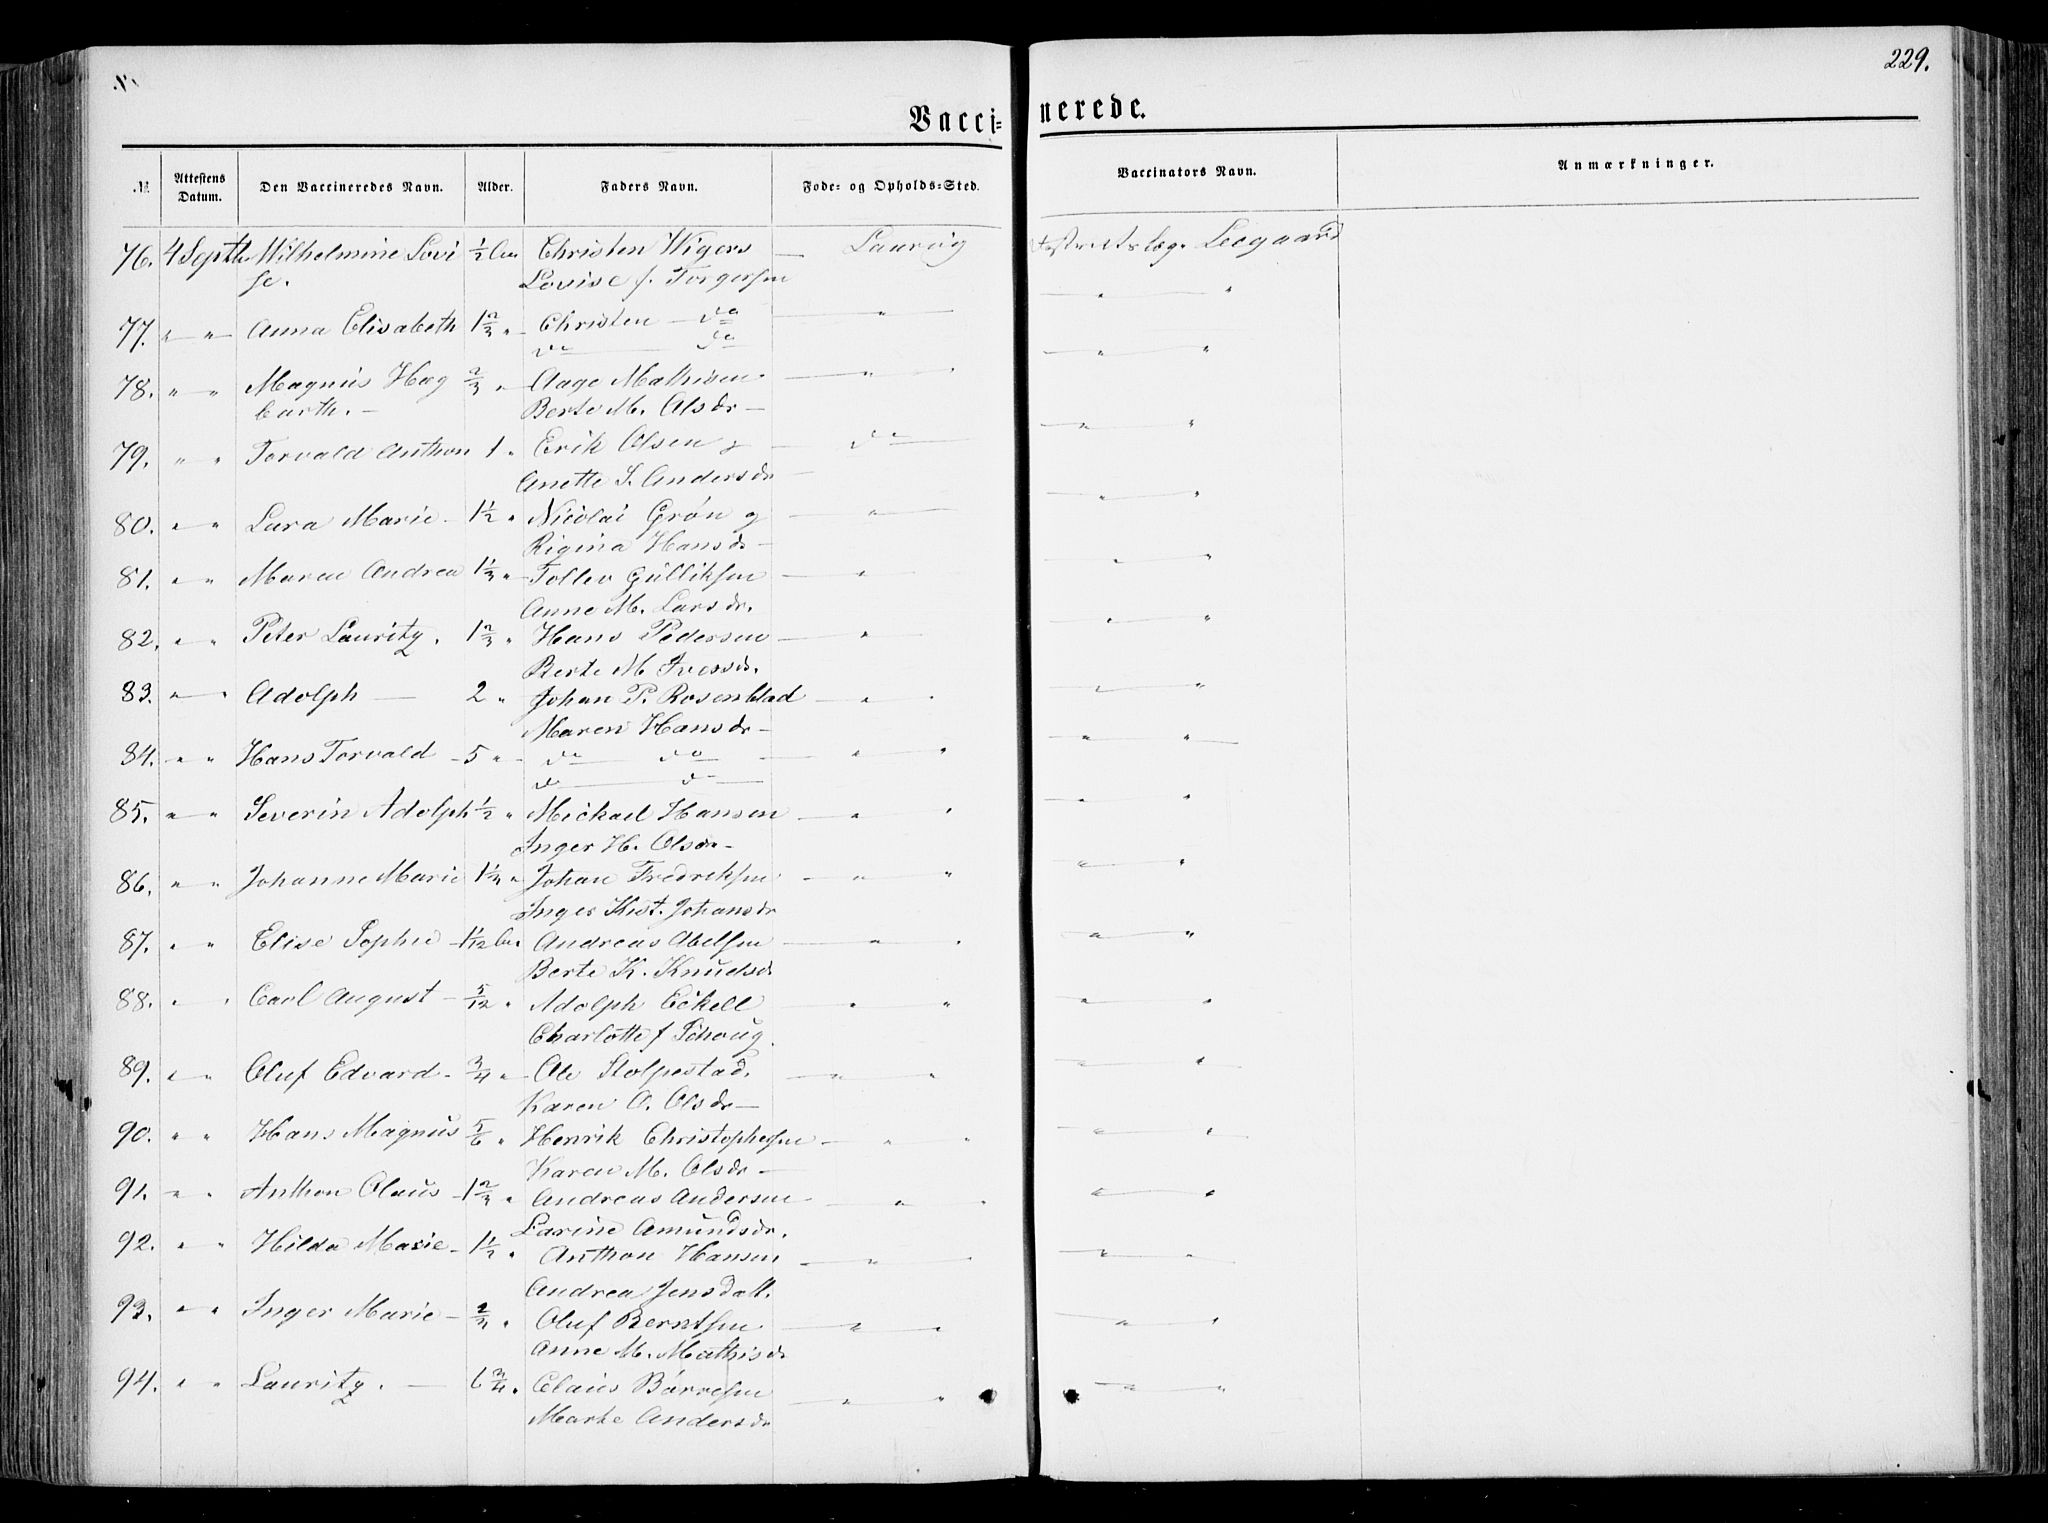 229.
Vacci= nerede.
№ Attestens Datum. Den Vaccineredes Navn. Alder. Faders Navn. Føde- og Opholds=Sted. Vaccinators Navn. Anmærkninger.
76. 4 Septb. Wilhelmine Lovi ½ Aar Christen Wigers — Laurvig Districtslæge Leegaard
se. Lovise f. Torgersen " "
77. " " Anna Elisabeth 1⅔ " Christen — do "
do do " "
78. " " Magnus Hag ⅔ " Aage Mathisen — " "
barth. — Berte M. Olsdr — " "
79. " " Torvald Anthon 1 " Erik Olsen & — do
Anette S. Andersdr — " "
80. " " Lara Marie — 1½ " Nicolai Grøn & — "
Rigina Hansdr — " "
81. " " Maren Andrea 1⅓ " Tollev Gulliksen — "
Anne M. Larsdr. " "
82. " " Peter Lauritz. 1⅔ " Hans Pedersen — "
Berte M Iversdr. " "
83. " " Adolph — 2 " Johan P. Rosenblad — " "
Maren Hansdr — " "
84. " " Hans Torvald — 5 " do do — " "
do do — " "
85. " " Severin Adolph ½ " Mickael Hansen — " "
Inger H. Olsdr — " "
86. " " Johanne Marie 1¼ " Johan Fredriksen — " "
Inger Krist. Johansdr " "
87. " " Elise Sophie — 1/12 Aar Andreas Abelsen — " "
Berte K. Knudsdr " "
88. " " Carl August — 5/12 " Adolph Eckell " "
Charlotte f Schoug. " "
89. " " Oluf Edvard — ¾ " Ole Stolpestad. — " "
Karen O. Olsdr — " "
90. " " Hans Magnus 5/6 " Henrik Christophersen — " "
Karen M. Olsdr — " "
91. " " Anthon Olaus — 1⅔ " Andreas Andersen — " "
Larine Amundsdr.
92. " " Hilda Marie — 1½ " Anthon Hansen — " " "
Andrea Jensdatt. " "
93. " " Inger Marie — " Oluf Berntsen — " "
Anne M. Mathisdr
94. " " Lauritz. — 6¾ " Claus Børresen — " " " "
Marte Andersdr